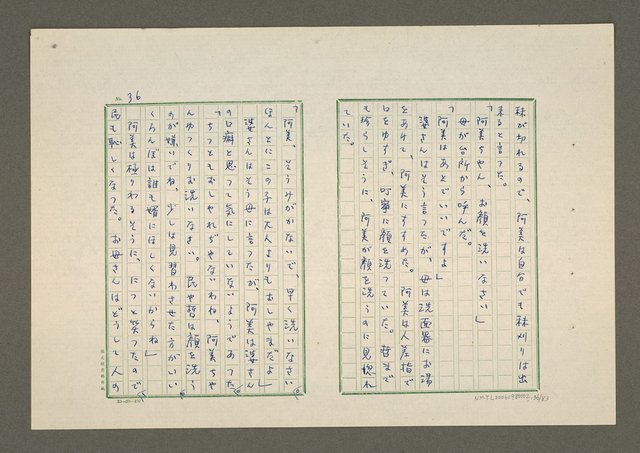 秣が切れるので、阿美は自分でも秣刈りは出
来ると言つた。
「阿美ちやん、お顔を洗いなさい」
母が台所から呼んだ。
「阿美はあとでいいですよ」
婆さんはそう言つたが、母は洗面器にお湯
をあけて、阿美にすすめた。阿美は人差指で
口をゆすぎ、叮寧に顔を洗つていた。哲まで
も珍らしそうに、阿美が顔を洗うのに見惚れ
ていた。
No. 36
「阿美、そうみがかないで、早く洗いなさい
ほんとにこの子は大人よりもおしやまだよ」
婆さんはそう母に言つたが、阿美は婆さん
の口癖と思つて気にしていないようであつた
「ちつともおしやれぢやないわね、阿美ちや
んゆつくりお洗いなさい。民や哲は顔を洗う
のが嫌いでね、少しは見習わせた方がいい
くろんぼは誰も婿にほしくないからね」
阿美は極りわるそうに、につと笑つたので
民も恥しくなつた。お母さんはどうして人の
20×10-20
NMTL20060980002-36/83